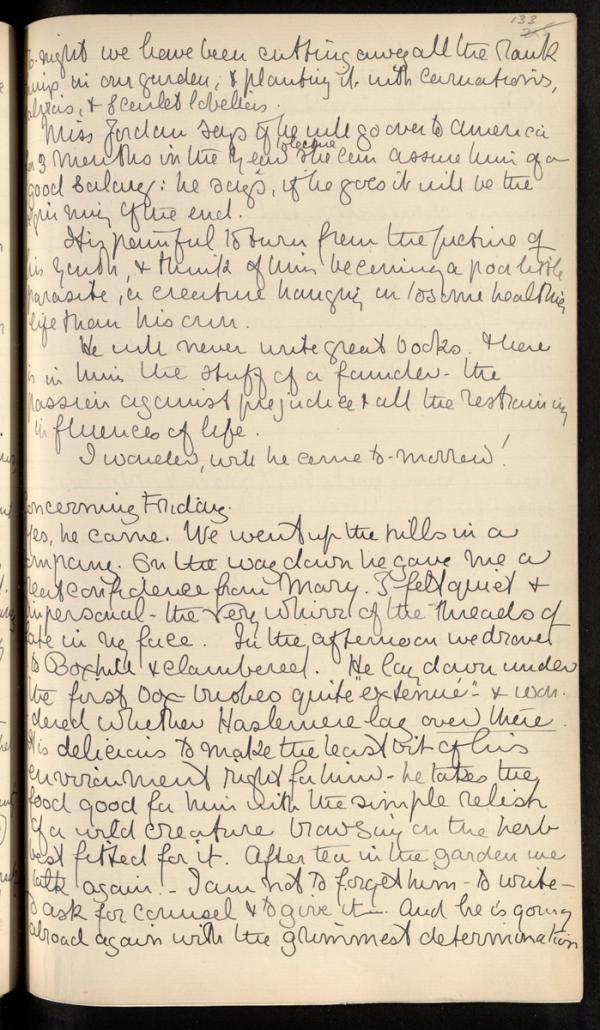 133
To-night we have been cutting away all the rank
in our garden, & planting it with carnations,
& scarlet lobelias.
Miss Jordan says if he will go over to America
for 3 months in the year & lecture she can assure him of a
good salary: he says, if he goes it will be the
beginning of the end.
It is painful to turn from the picture of
his youth, & think of him becoming a poor little
parasite, a creature hanging on to some healthier
life than his own.
He will never write great books. & there
is in him the stuff of a founder - the
passion against prejudice & all the restraining
influences of life.
I wonder, will he come to-morrow!
Concerning Friday.
Yes, he came. We went up the hills in a
company. On the way down he gave me a
great confidence from Mary. I felt quiet &
impersonal - the very whirr of the threads of
fate in my face. In the afternoon we drove
to Boxhill & clambered. He lay down under
the first box-bushes quite "exténué" - & won-
dered whether Haslemere lay over there.
It is delicious to make the least bit of his
environment right for him - he takes the
food good for him with the simple relish
of a wild creature browsing on the herb
best fitted for it. After tea in the garden we
talk again - I am not to forget him - to write -
to ask for counsel & to give it -. And he is going
abroad again with the grimmest determination